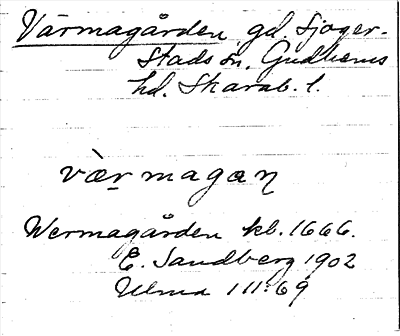 Värmagården gd. Sjoger-
stads sn. Gudhems
hd. Skarab. l.
vàr̤magan
Wermagården kb. 1666.
E. Sandberg 1902
Ulma 111:69